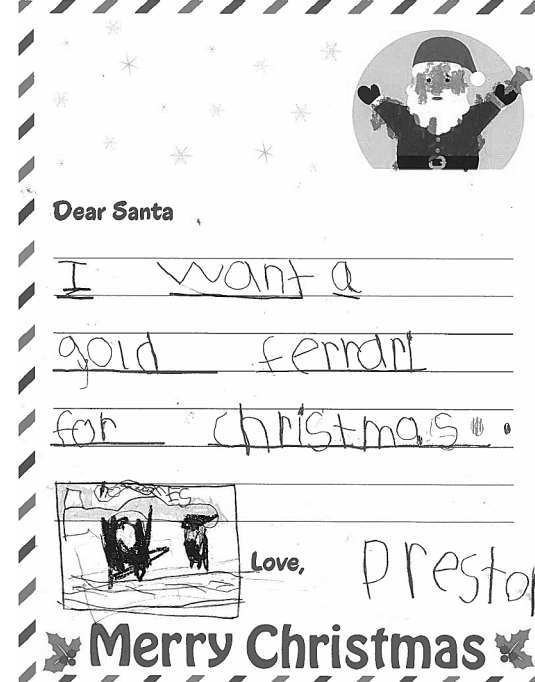 Dear Santa
I want a
gold ferrari
for christmas.
Love, Preston
Merry Christmas